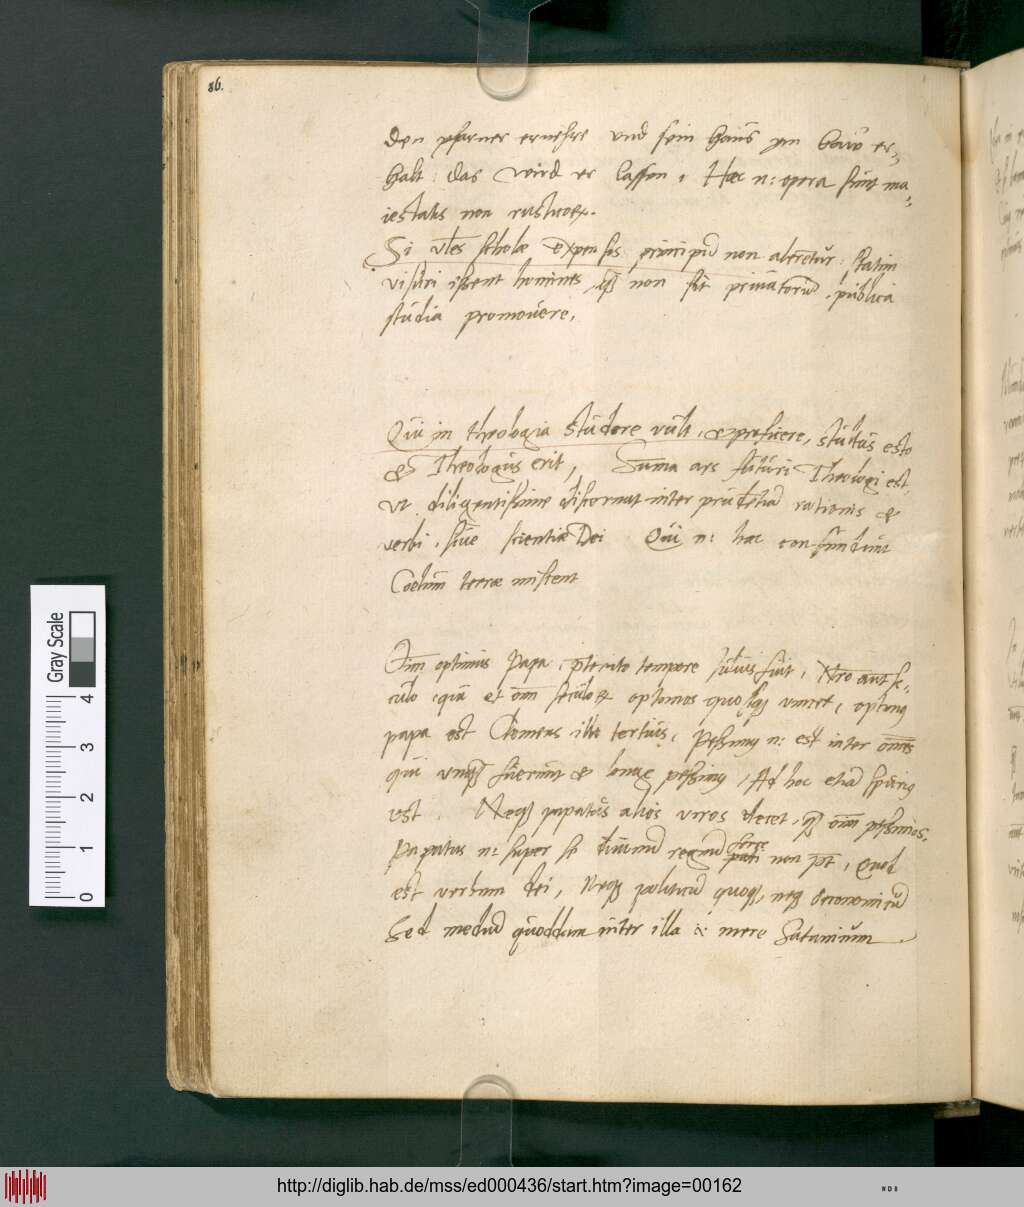 86.
den pfarner ernehre und sein hauß ym bauw er¬
halt: das wird er lassen. Haec n: opera sunt ma¬
iestatis non rusticorꝝ.
Si vtles scholae expensis principiū non alerētur: statim
visuri essent homines, qꝫ non sit priuatorū publica
studia promouere.
Qui in theologia studere vult, et proficere, stultus esto
et Theologus erit, Suma ars futuri Theologi est,
vt diligentissime discernat inter prudētiā rationis et
verbi, siue scientiā Dei Qui n: hac confundunt
Coelum terrae miscent
Oīm optimus Papa p̄terito tempore Iulius fuit, Nr̄o aut̄ se¬
culo, quia et oīm seculorꝝ optimos quosqꝫ vincet, optimꝰ
papa est Clemens ille tertius, Pessimꝰ n: est inter oēs
qui vnqꝫ fuerunt et longe pessimꝰ, Ad hoc etiā spuriꝰ
est. Neqꝫ papatus alios viros decet, qꝫ oīm pessimos,
Papatus n: super se diuinū regnū ferre
pati non pōt, Quod
est verbum dei, Neqꝫ politicū quoqꝫ, neqꝫ oeconomicū
Sed mediū quoddam inter illa et mere Satanicum
Gray Scale
0 1 2 3 4
http://diglib.hab.de/mss/ed000436/start.htm?image=00162